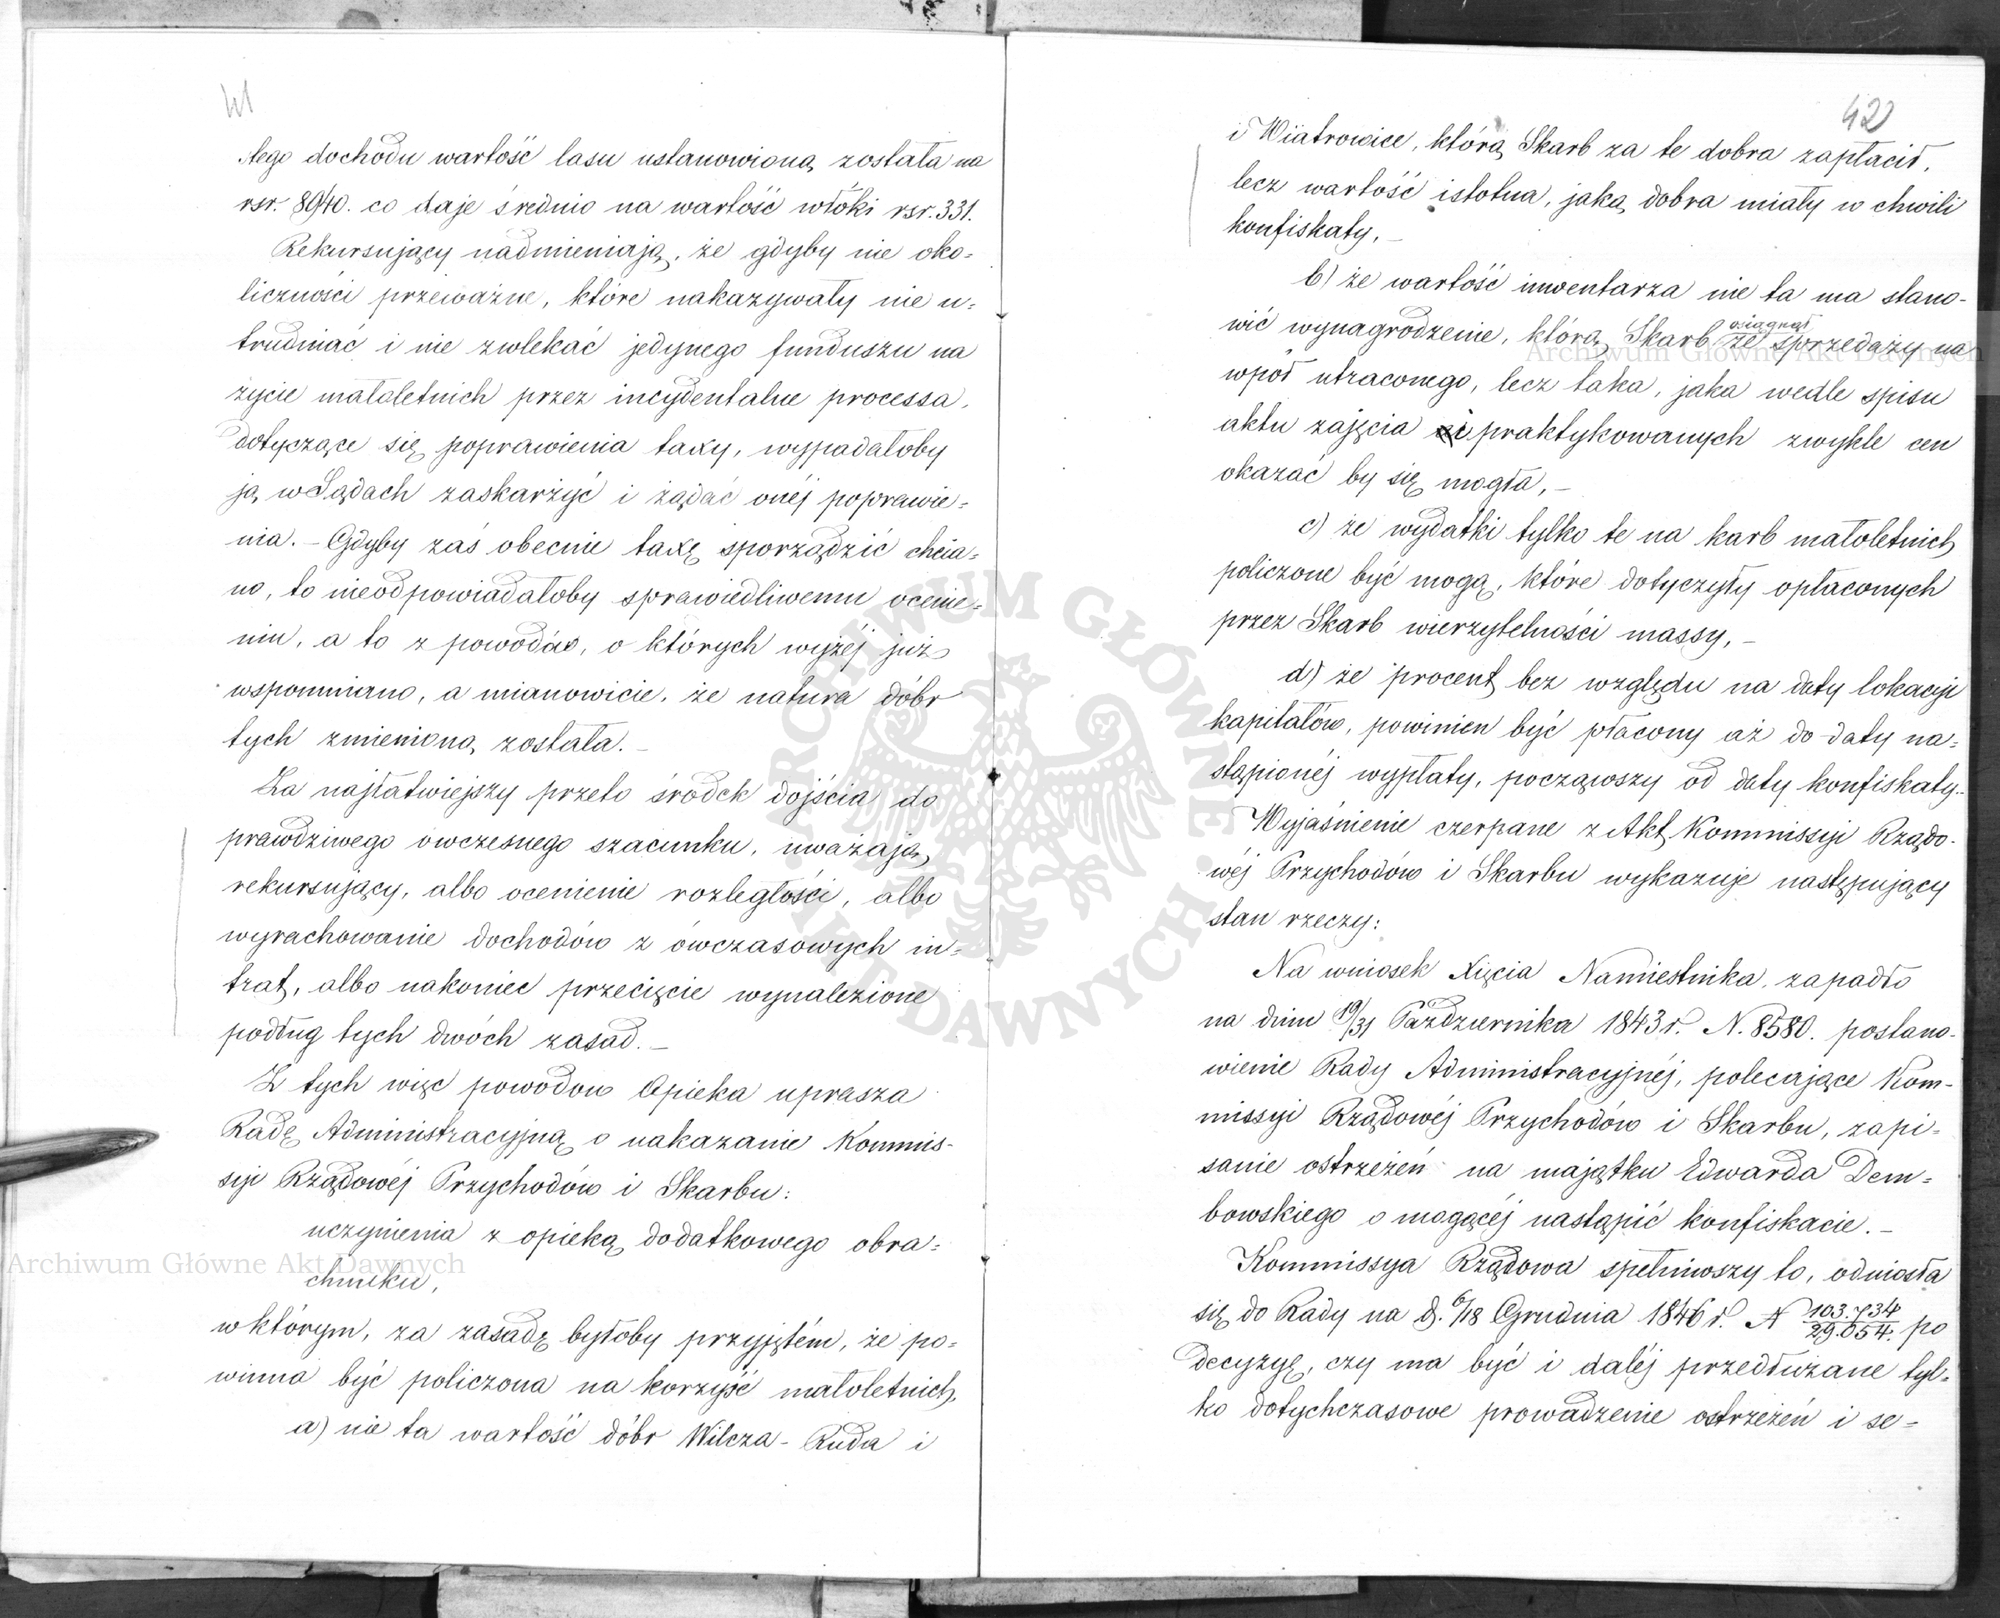 41
tego dochodu wartość lasu ustanowioną została na
rsr. 8940. co daje średnio na wartość włóki rsr. 331.
Rekursujący nadmieniają, że gdyby nie oko-
liczności przeważne, które nakazywały nie u-
trudniać i nie zwlekać jedynego funduszu na
życie małoletnich przez incydentalne processa,
dotyczące się poprawienia taxy, wypadałoby
ją w Sądach zaskarżyć i żądać onéj poprawie-
nia. – Gdyby zaś obecnie taxę sporządzić chcia-
no, to nieodpowiadałoby sprawiedliwemu ocenie-
niu, a to z powodów, o których wyżéj już
wspomniano, a mianowicie, że natura dóbr
tych zmienioną została. –
Za najłatwiejszy przeto środek dojścia do
prawdziwego owczesnego szacunku, uważają
rekursujący, albo ocenienie rozległości, albo
wyrachowanie dochodów z ówczasowych in-
trat, albo nakoniec przecięcie wynalezione
podług tych dwóch zasad. –
Z tych więc powodow Opieka uprasza
Radę Administracyjną o nakazanie Kommis-
syi Rządowéj Przychodów i Skarbu:
uczynienia z opieką dodatkowego obra-
chunku,
w którym, za zasadę byłoby przyjętém, że po-
winna być policzona na korzyść małoletnich,
a) nie ta wartość dóbr Wilcza-Ruda i
42
i Wiatrowice, którą Skarb za te dobra zapłacił,
lecz wartość istotna, jaką dobra miały w chwili
konfiskaty, –
b) że wartość inwentarza nie ta ma stano-
wić wynagrodzenie, którą Skarb osiągnął ze sprzedaży na
wpół utraconego, lecz taka, jaka wedle spisu
aktu zajęcia i praktykowanych zwykle cen
okazać by się mogła, –
c) że wydatki tylko te na karb małoletnich
policzone być mogą, które dotyczyły opłaconych
przez Skarb wierzytelności massy, –
d) że procent bez względu na daty lokacyi
kapitałów, powinien być płacony aż do daty na-
stąpionéj wypłaty, począwszy od daty konfiskaty.
Wyjaśnienie czerpane z Akt Kommissyi Rządo-
wéj Przychodów i Skarbu wykazuje następujący
stan rzeczy:
Na wniosek Xięcia Namiestnika, zapadło
na dniu 19/31 Października 1843 r. N. 8580. postano-
wienie Rady Administracyjnéj, polecające Kom-
missyi Rządowéj Przychodów i Skarbu, zapi-
sanie ostrzeżeń na majątku Edwarda Dem-
bowskiego o mogącéj nastąpić konfiskacie. –
Kommissya Rządowa spełniwszy to, odniosła
się do Rady na d. 6/18 Grudnia 1846 r. N 103.734/29.054. po
decyzyę, czy ma być i daléj przedłużane tyl-
ko dotychczasowe prowadzenie ostrzeżeń i se-
Archiwum Główne Akt Dawnych
Archiwum Główne Akt Dawnych
ARCHIWUM GŁÓWNE AKT DAWNYCH